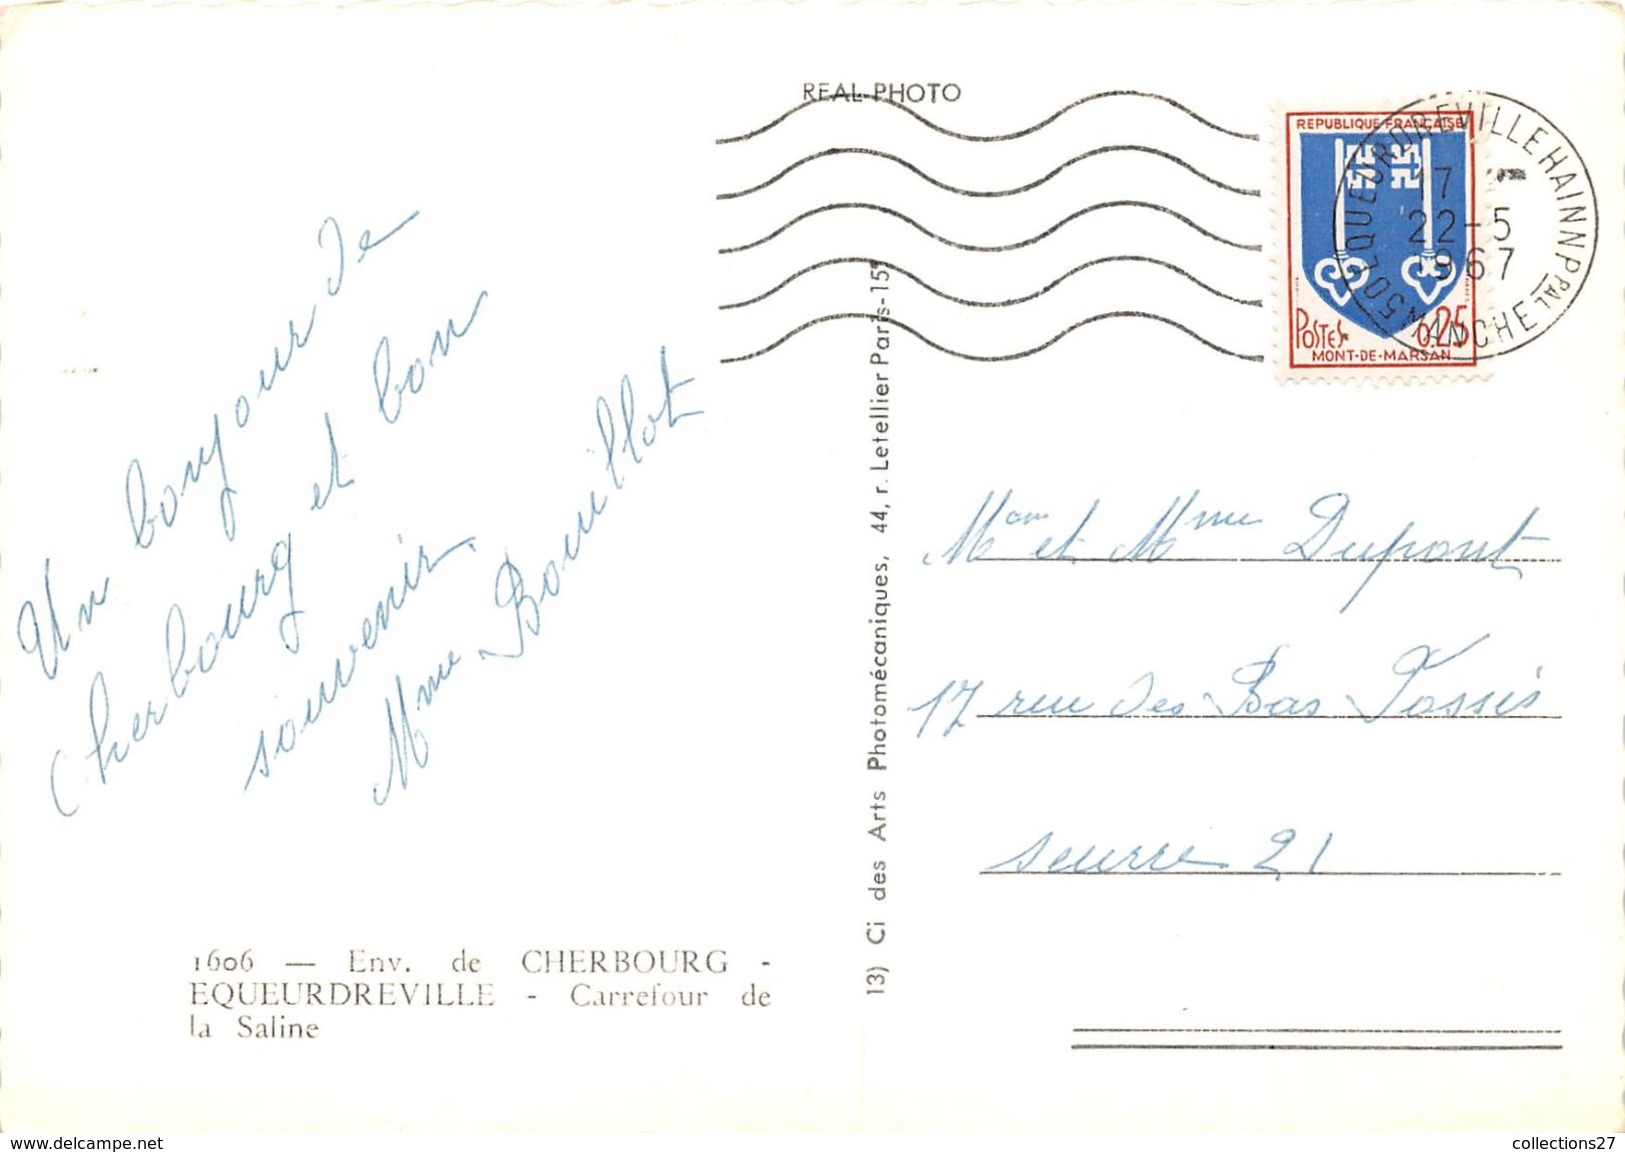 REAL-PHOTO
REPUBLIQUE FRANÇAISE
POSTES 0,25
MONT-DE-MARSAN
50 EQUEURDREVILLE HAINN PPAL
MANCHE
17
22-5
1967
Un bonjour de
Cherbourg et bon
souvenir.
Mme Bouillot
Mr et Mme Dupont
17 rue des Bas Fossés
Seurre 21
1606 — Env. de CHERBOURG -
EQUEURDREVILLE - Carrefour de
la Saline
13) Ci des Arts Photomécaniques, 44, r. Letellier Paris-15e
www.delcampe.net
collections27